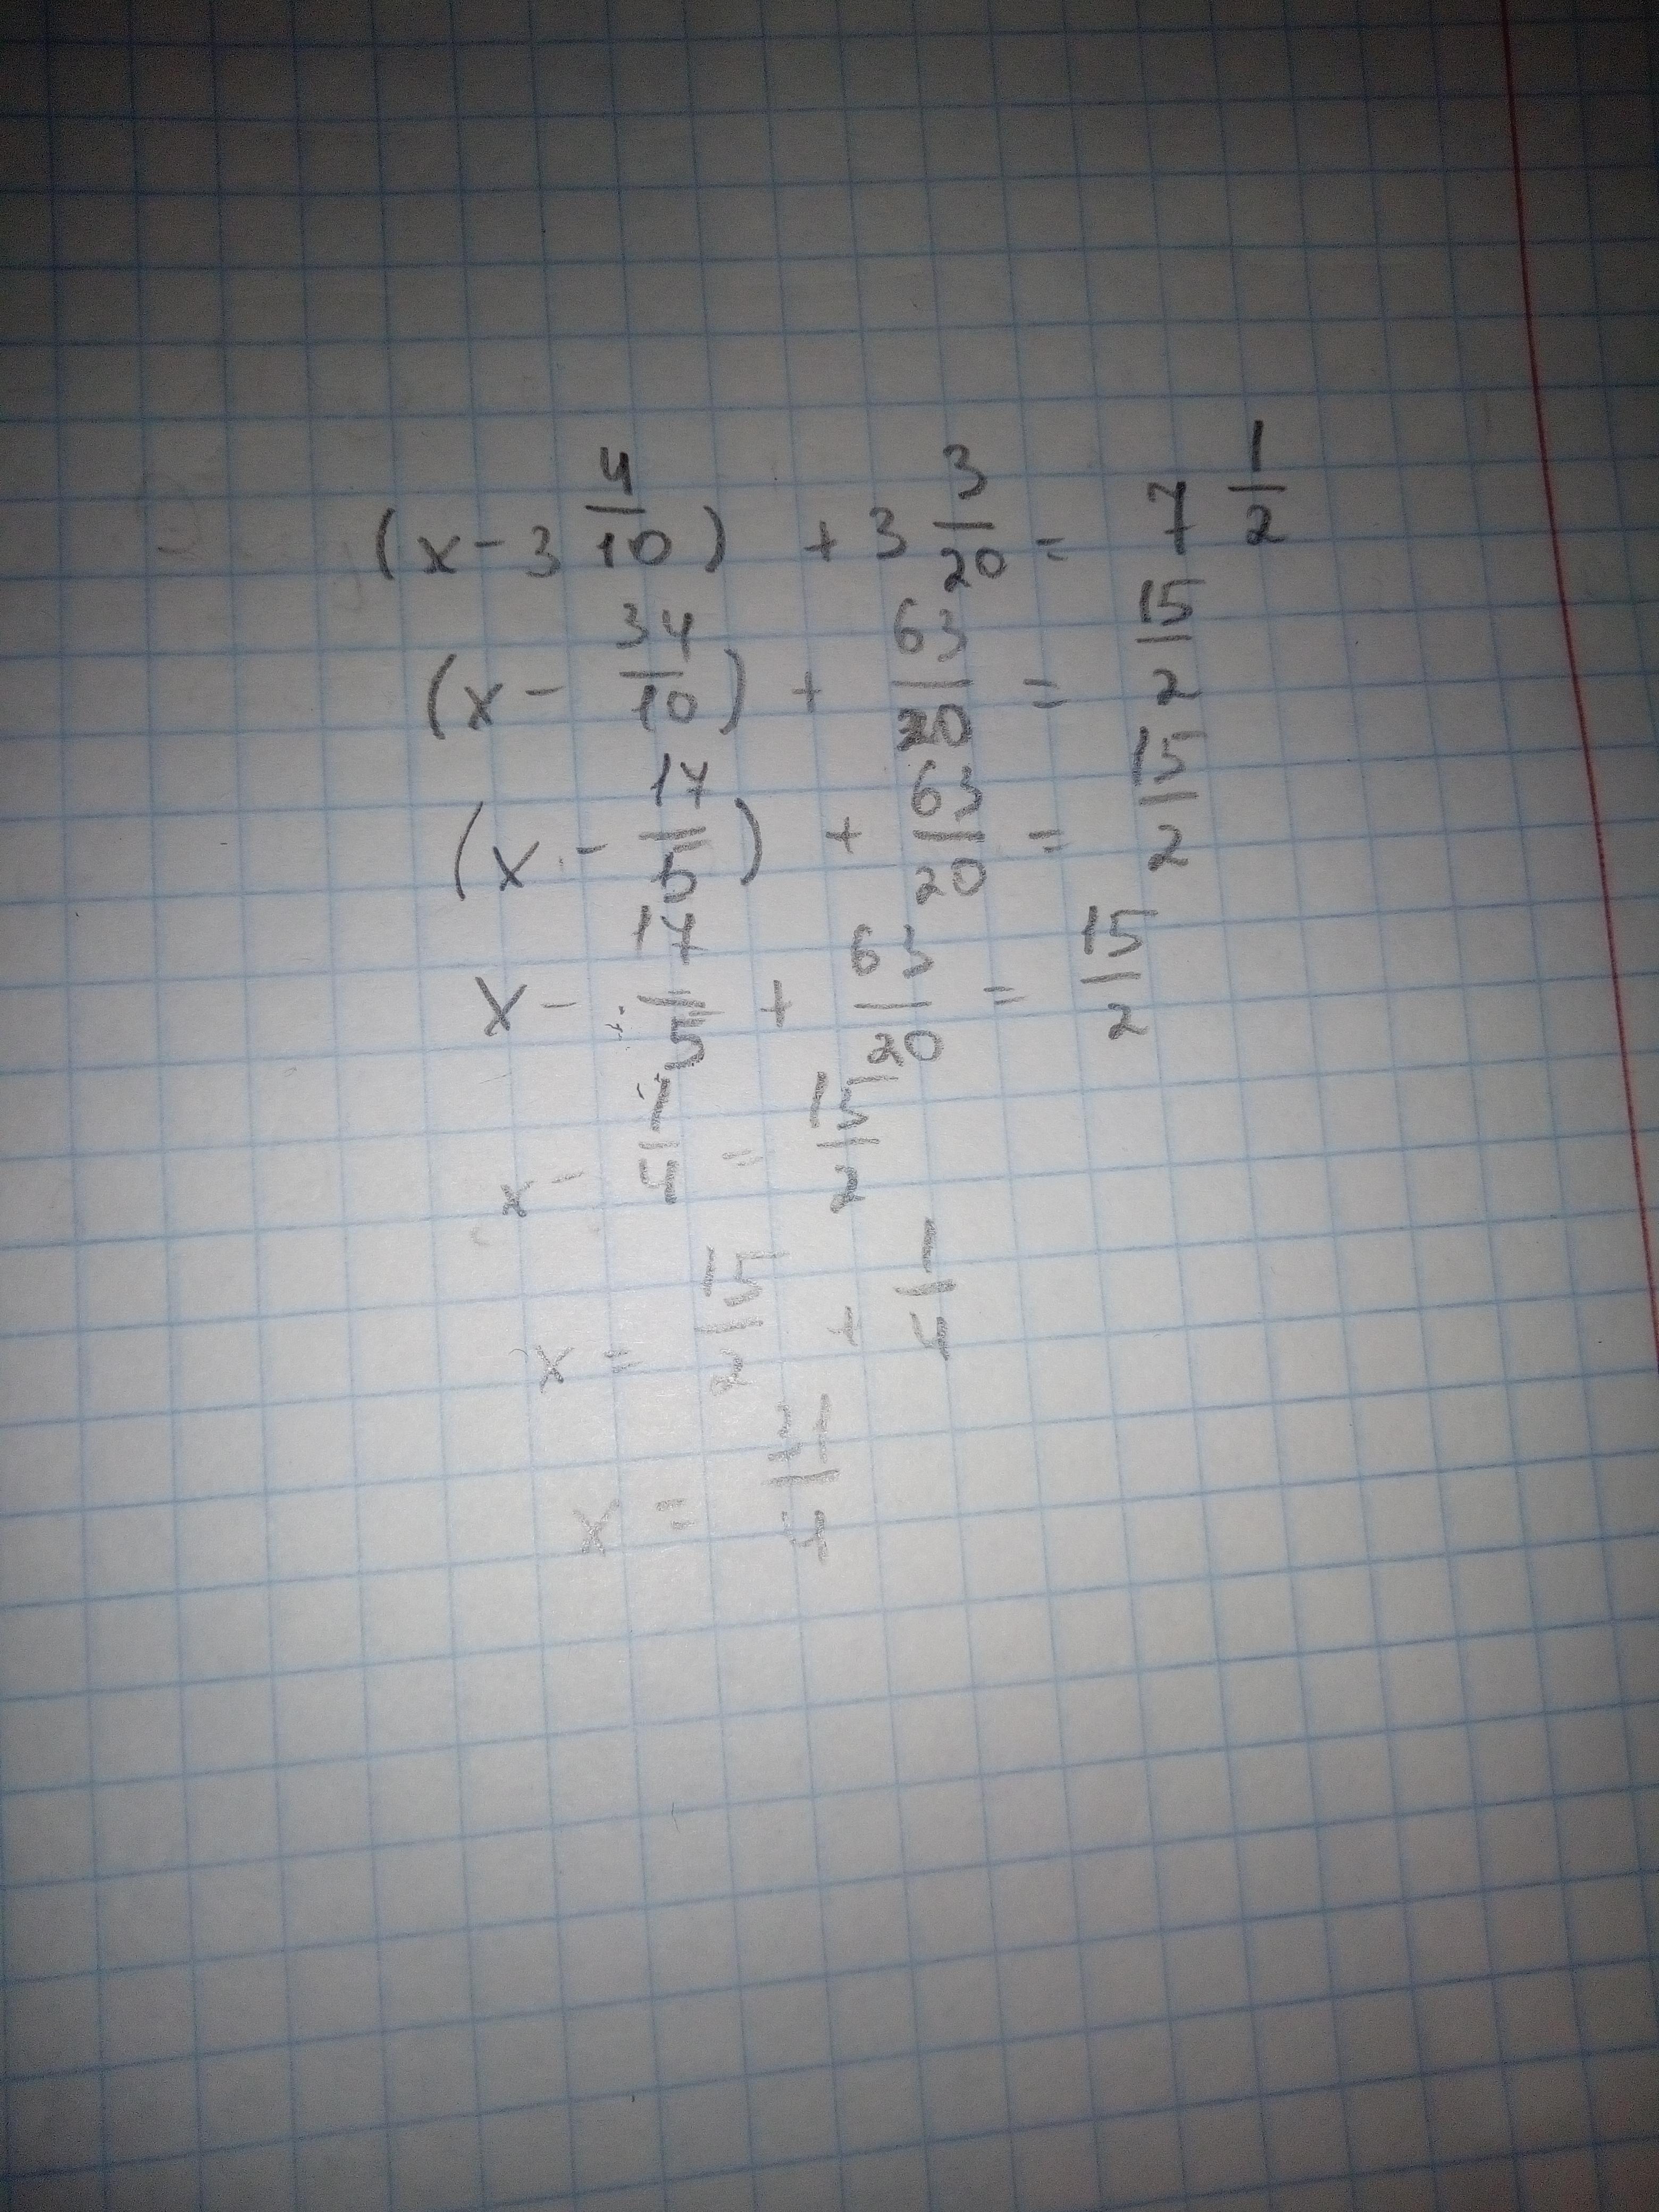 (x - 3 4/10) + 3 3/20 = 7 1/2
(x - 34/10) + 63/20 = 15/2
(x - 17/5) + 63/20 = 15/2
x - 17/5 + 63/20 = 15/2
x - 1/4 = 15/2
x = 15/2 + 1/4
x = 31/4